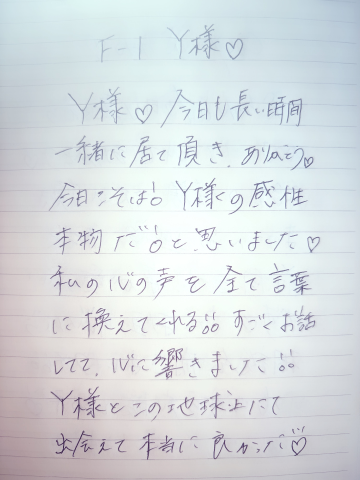 F-1 Y様♡
Y様♡今日も長い時間
一緒に居て頂き、ありがとう♡
今日こそは!! Y様の感性
本物だ!!と思いました♡
私の心の声を全て言葉
に換えてくれる!! すごくお話
してて、心に響きました!!
Y様とこの地球上にて
出会えて本当に良かった!!♡